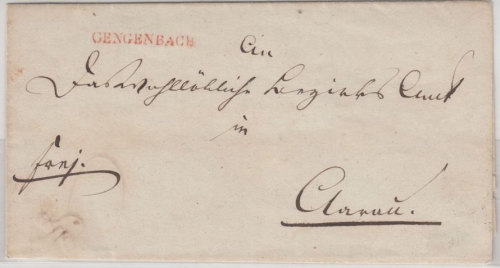 GENGENBACH
An
Das Wohllöbliche Bezirks Amt
in
frej.
Aarau.